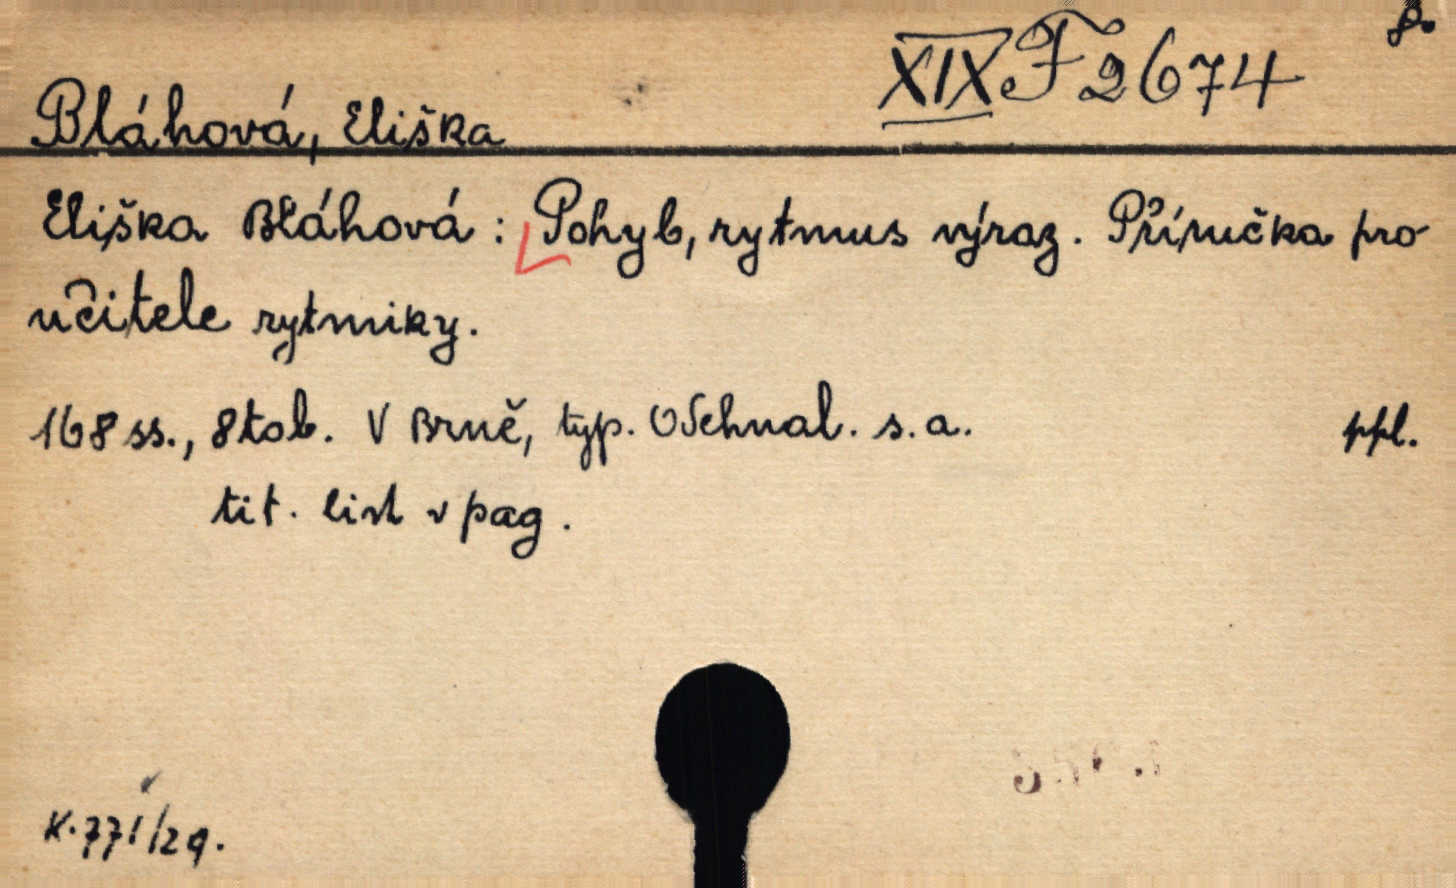 p.
XIX F 2674
Bláhová, Eliška
Eliška Bláhová: Pohyb, rytmus výraz. Příručka pro
učitele rytmiky.
168 ss., 8 tab. V Brně, typ. Odehnal. s.a. ppl.
tit. list v pag.
K.771/29.